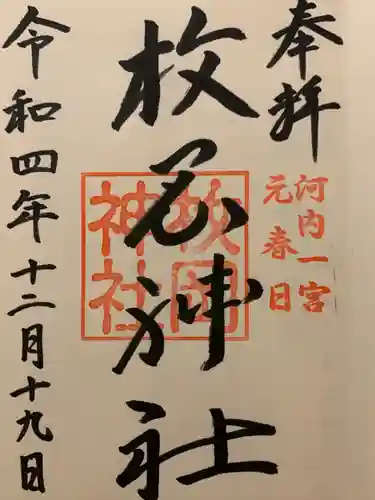 奉拝
河内一宮
元春日
枚岡神社
枚岡神社
令和四年十二月十九日